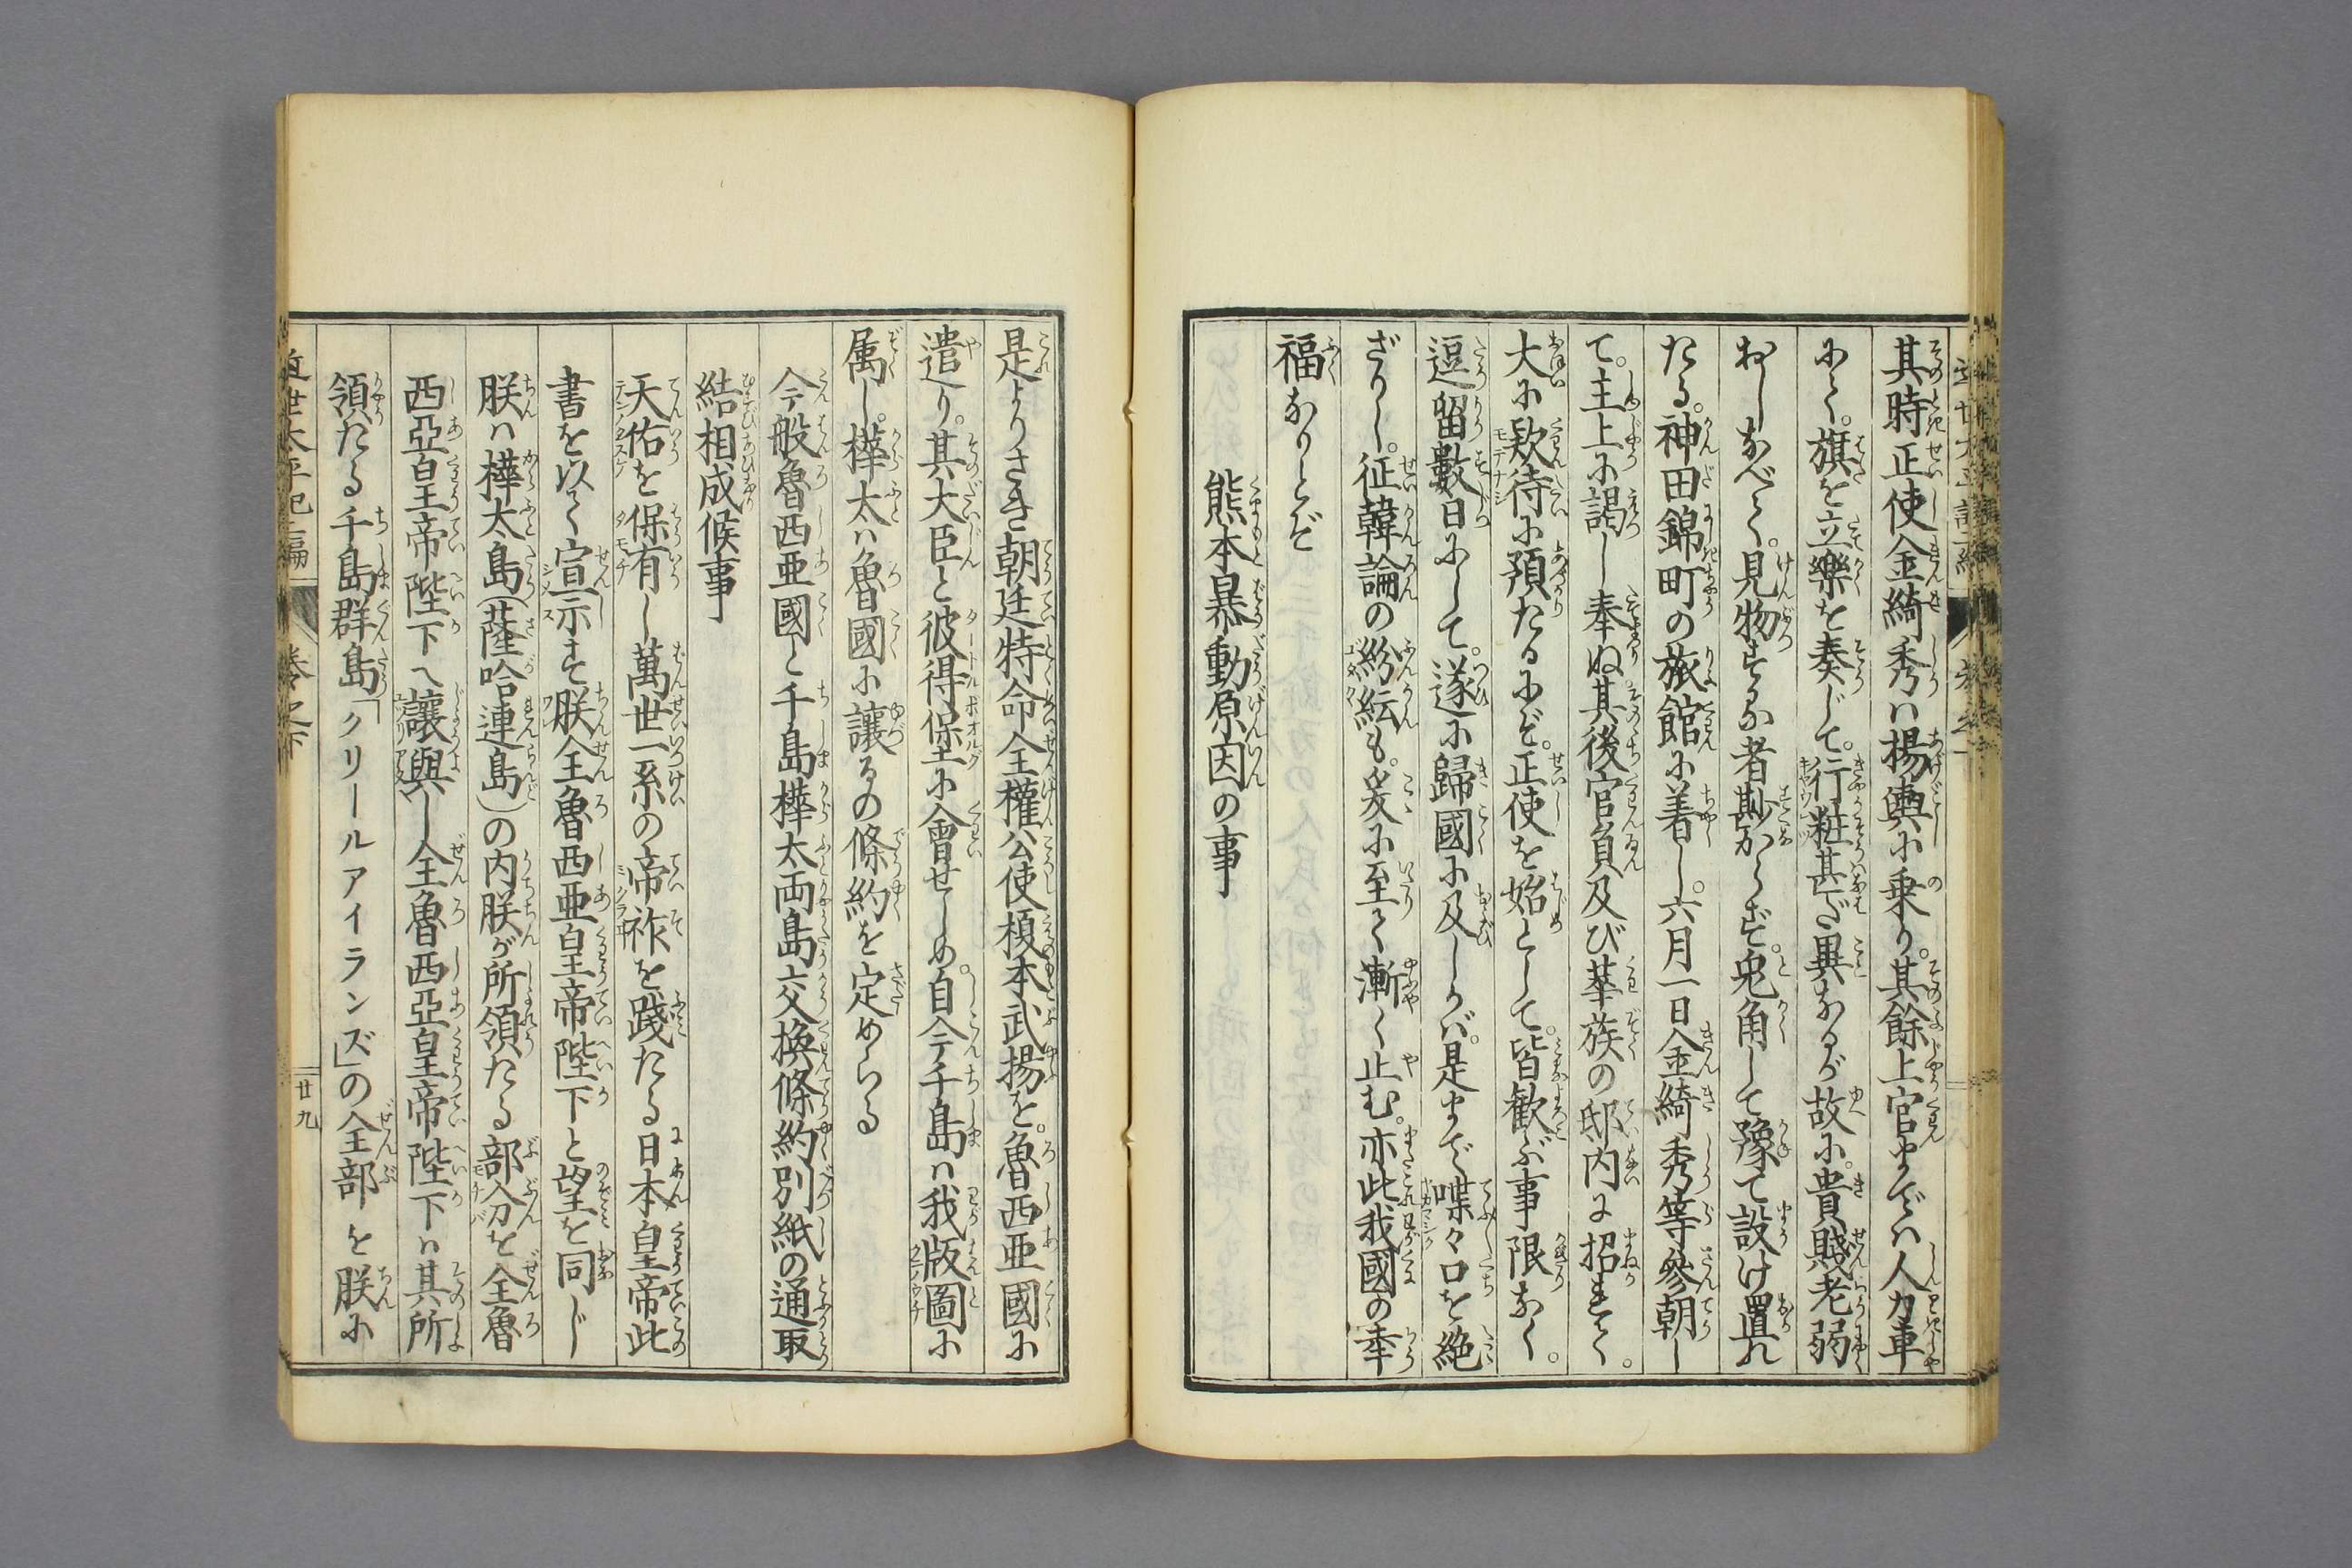 其時正使金綺秀ハ楊輿に乗り。其餘上官までハ人力車
にて。旗を立樂を奏して。行粧甚だ異なるが故に。貴賤老弱
おしなべて。見物する者尠からず。兎角して豫て設け置れ
たる。神田錦町の旅館に着し。六月一日金綺秀等參朝し
て。主上に謁し奉ぬ其後官員及び華族の邸内に招きて。
大に欵待に預たるにぞ。正使を始として。皆歓ぶ事限なく。
逗留數日にして。遂に歸國に及しかバ。是まで喋々口を絶
ざりし。征韓論の紛紜も。爰に至て漸く止む。亦此我國の幸
福なりとぞ
熊本暴動原因の事
是よりさき朝廷特命全權公使榎本武揚を。魯西亜國に
遣り。其大臣と彼得保に會せしめ。自今千島ハ我版圖に
属し。樺太ハ魯國に讓るの條約を定めらる
今般魯西亜國と千島樺太両島交換條約別紙の通取
結相成候事
天佑を保有し萬世一系の帝祚を踐たる日本皇帝此
書を以て宣示す朕全魯西亜皇帝陛下と望を同じ
朕ハ樺太島(薩哈連島)の内朕が所領たる部分を全魯
西亞皇帝陛下へ讓與し全魯西亞皇帝陛下ハ其所
領たる千島群島「クリールアイランズ」の全部を朕に
近世太平記二編 巻之下 廿九